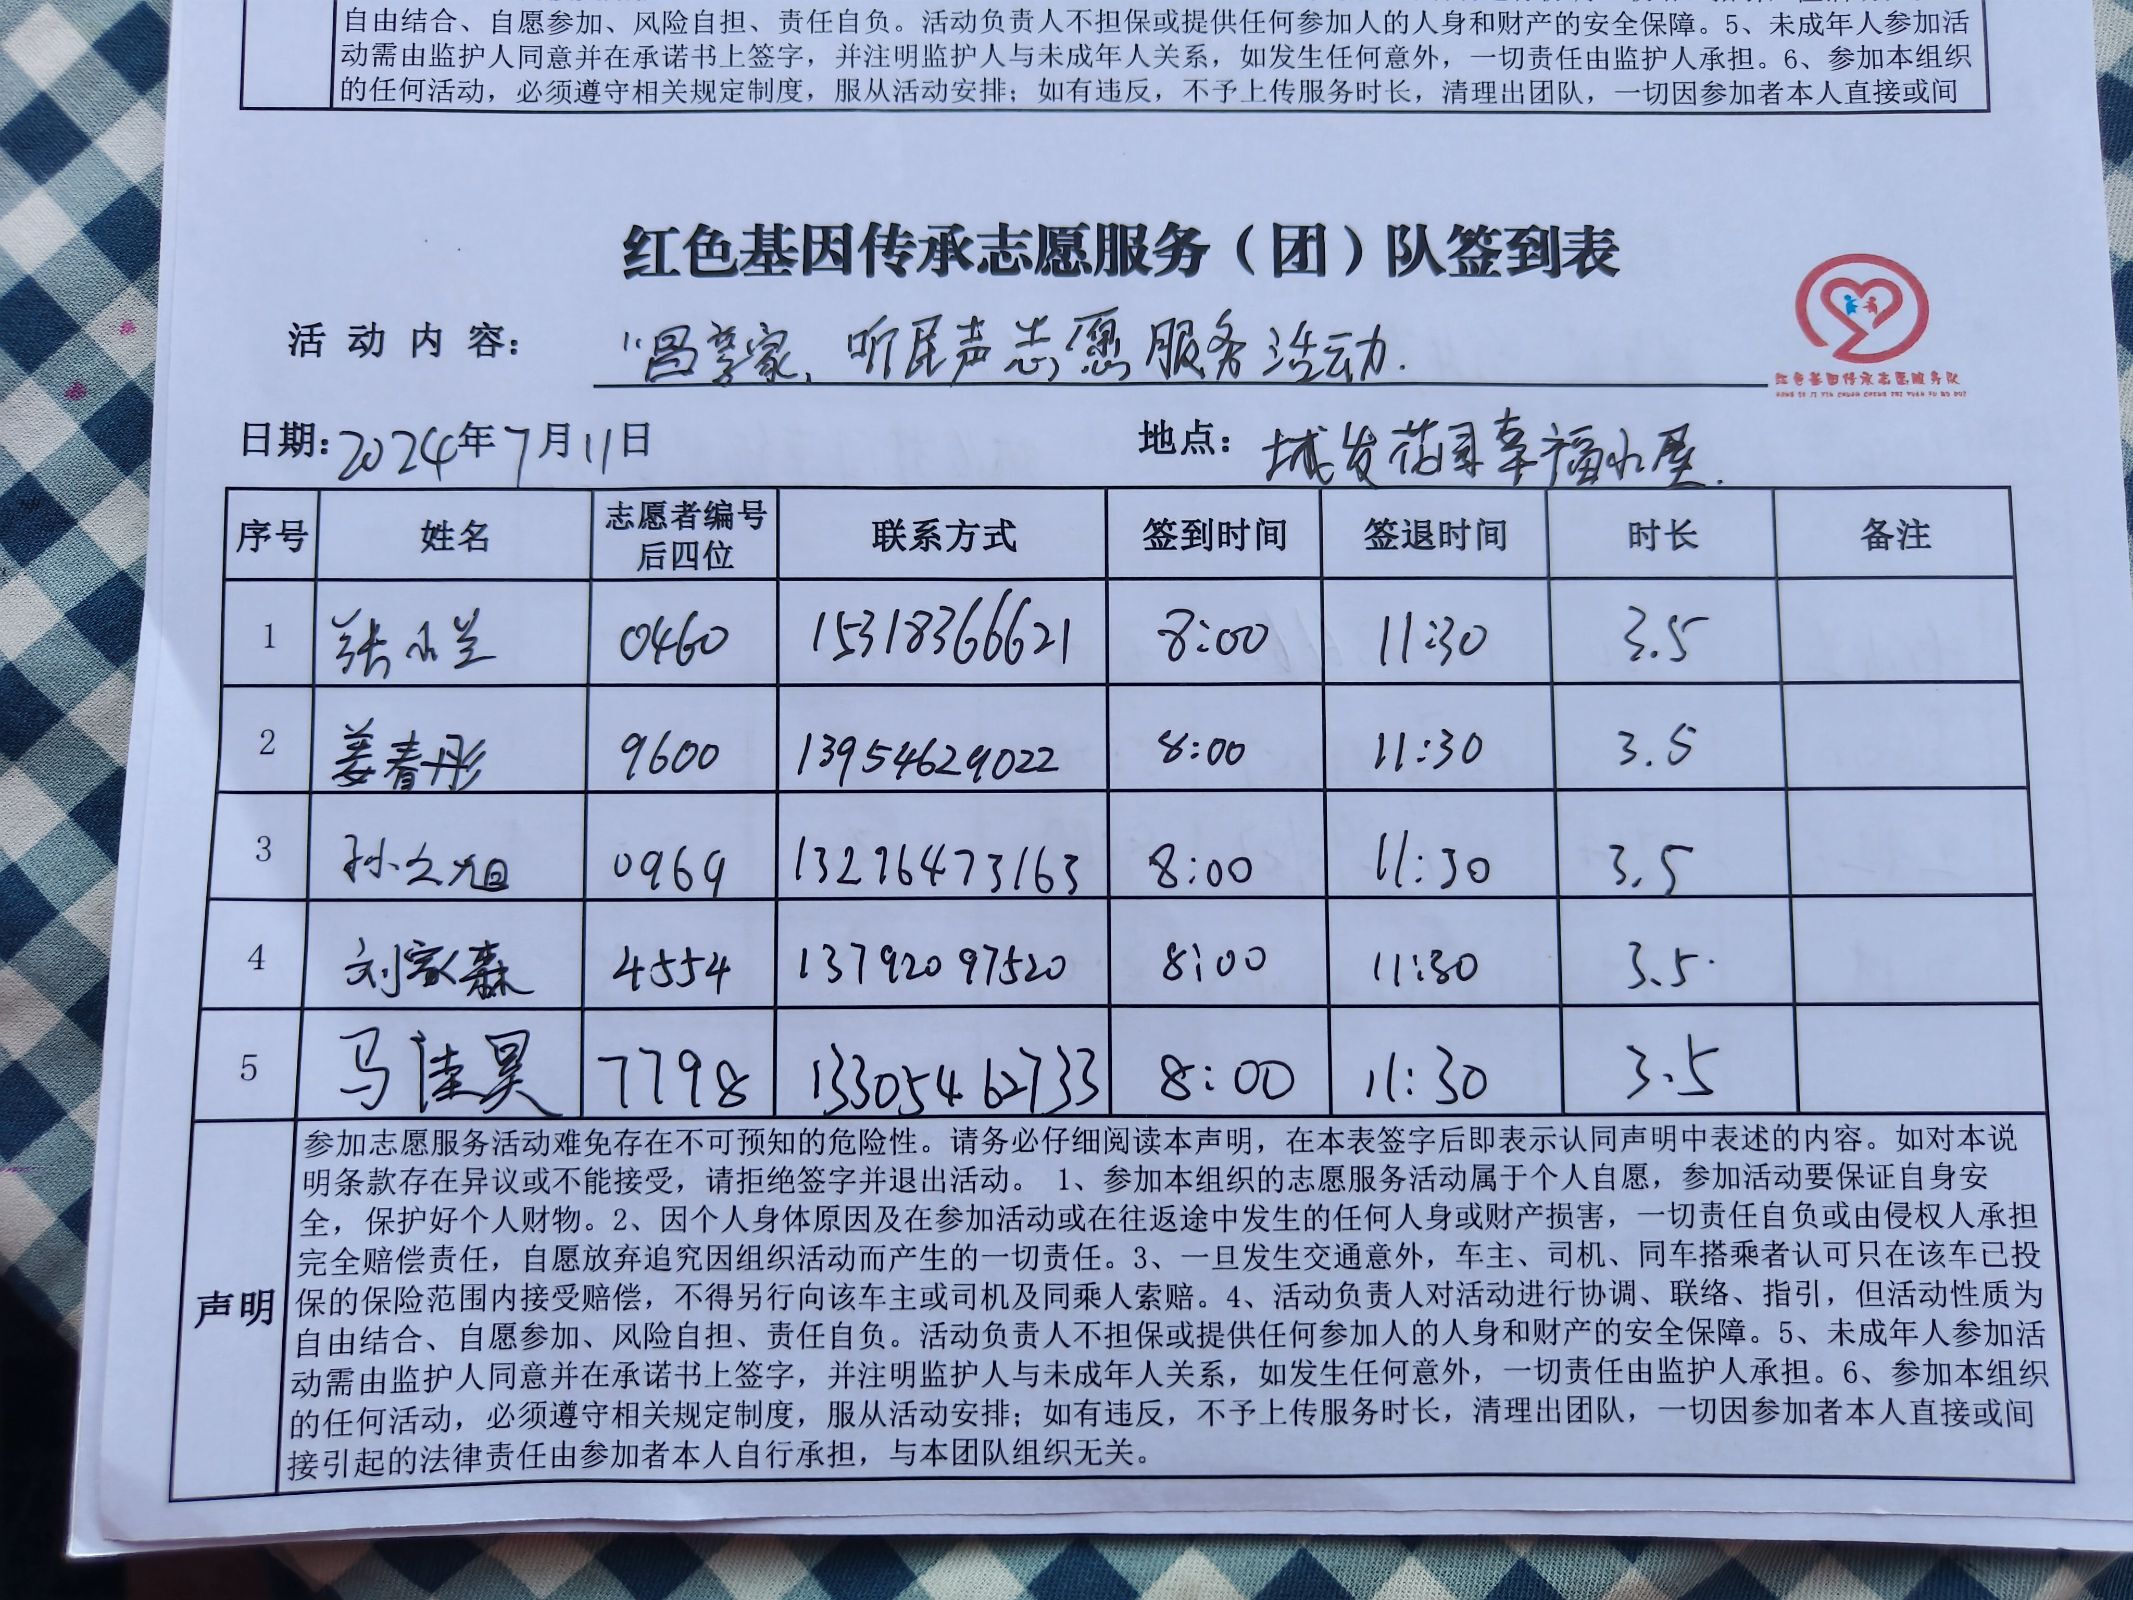 自由结合、自愿参加、风险自担、责任自负。活动负责人不担保或提供任何参加人的人身和财产的安全保障。5、未成年人参加活
动需由监护人同意并在承诺书上签字，并注明监护人与未成年人关系，如发生任何意外，一切责任由监护人承担。6、参加本组织
的任何活动，必须遵守相关规定制度，服从活动安排；如有违反，不予上传服务时长，清理出团队，一切因参加者本人直接或间
红色基因传承志愿服务（团）队签到表
活动内容： 家、听民声志愿服务活动.
红色基因传承志愿服务队
HONG SE JI YIN CHUAN CHENG ZHI YUAN FU WU DUI
日期：2024年7月11日 地点：城发花园幸福
序号 姓名 志愿者编号后四位 联系方式 签到时间 签退时间 时长 备注
1 张兰 0460 15318366621 8:00 11:30 3.5
2 姜春彤 9600 13954629022 8:00 11:30 3.5
3 孙文旭 0969 13276473163 8:00 11:30 3.5
4 刘家森 4554 13792097520 8:00 11:30 3.5
5 马佳昊 7798 13305462733 8:00 11:30 3.5
声明
参加志愿服务活动难免存在不可预知的危险性。请务必仔细阅读本声明，在本表签字后即表示认同声明中表述的内容。如对本说
明条款存在异议或不能接受，请拒绝签字并退出活动。 1、参加本组织的志愿服务活动属于个人自愿，参加活动要保证自身安
全，保护好个人财物。2、因个人身体原因及在参加活动或在往返途中发生的任何人身或财产损害，一切责任自负或由侵权人承担
完全赔偿责任，自愿放弃追究因组织活动而产生的一切责任。3、一旦发生交通意外，车主、司机、同车搭乘者认可只在该车已投
保的保险范围内接受赔偿，不得另行向该车主或司机及同乘人索赔。4、活动负责人对活动进行协调、联络、指引，但活动性质为
自由结合、自愿参加、风险自担、责任自负。活动负责人不担保或提供任何参加人的人身和财产的安全保障。5、未成年人参加活
动需由监护人同意并在承诺书上签字，并注明监护人与未成年人关系，如发生任何意外，一切责任由监护人承担。6、参加本组织
的任何活动，必须遵守相关规定制度，服从活动安排；如有违反，不予上传服务时长，清理出团队，一切因参加者本人直接或间
接引起的法律责任由参加者本人自行承担，与本团队组织无关。